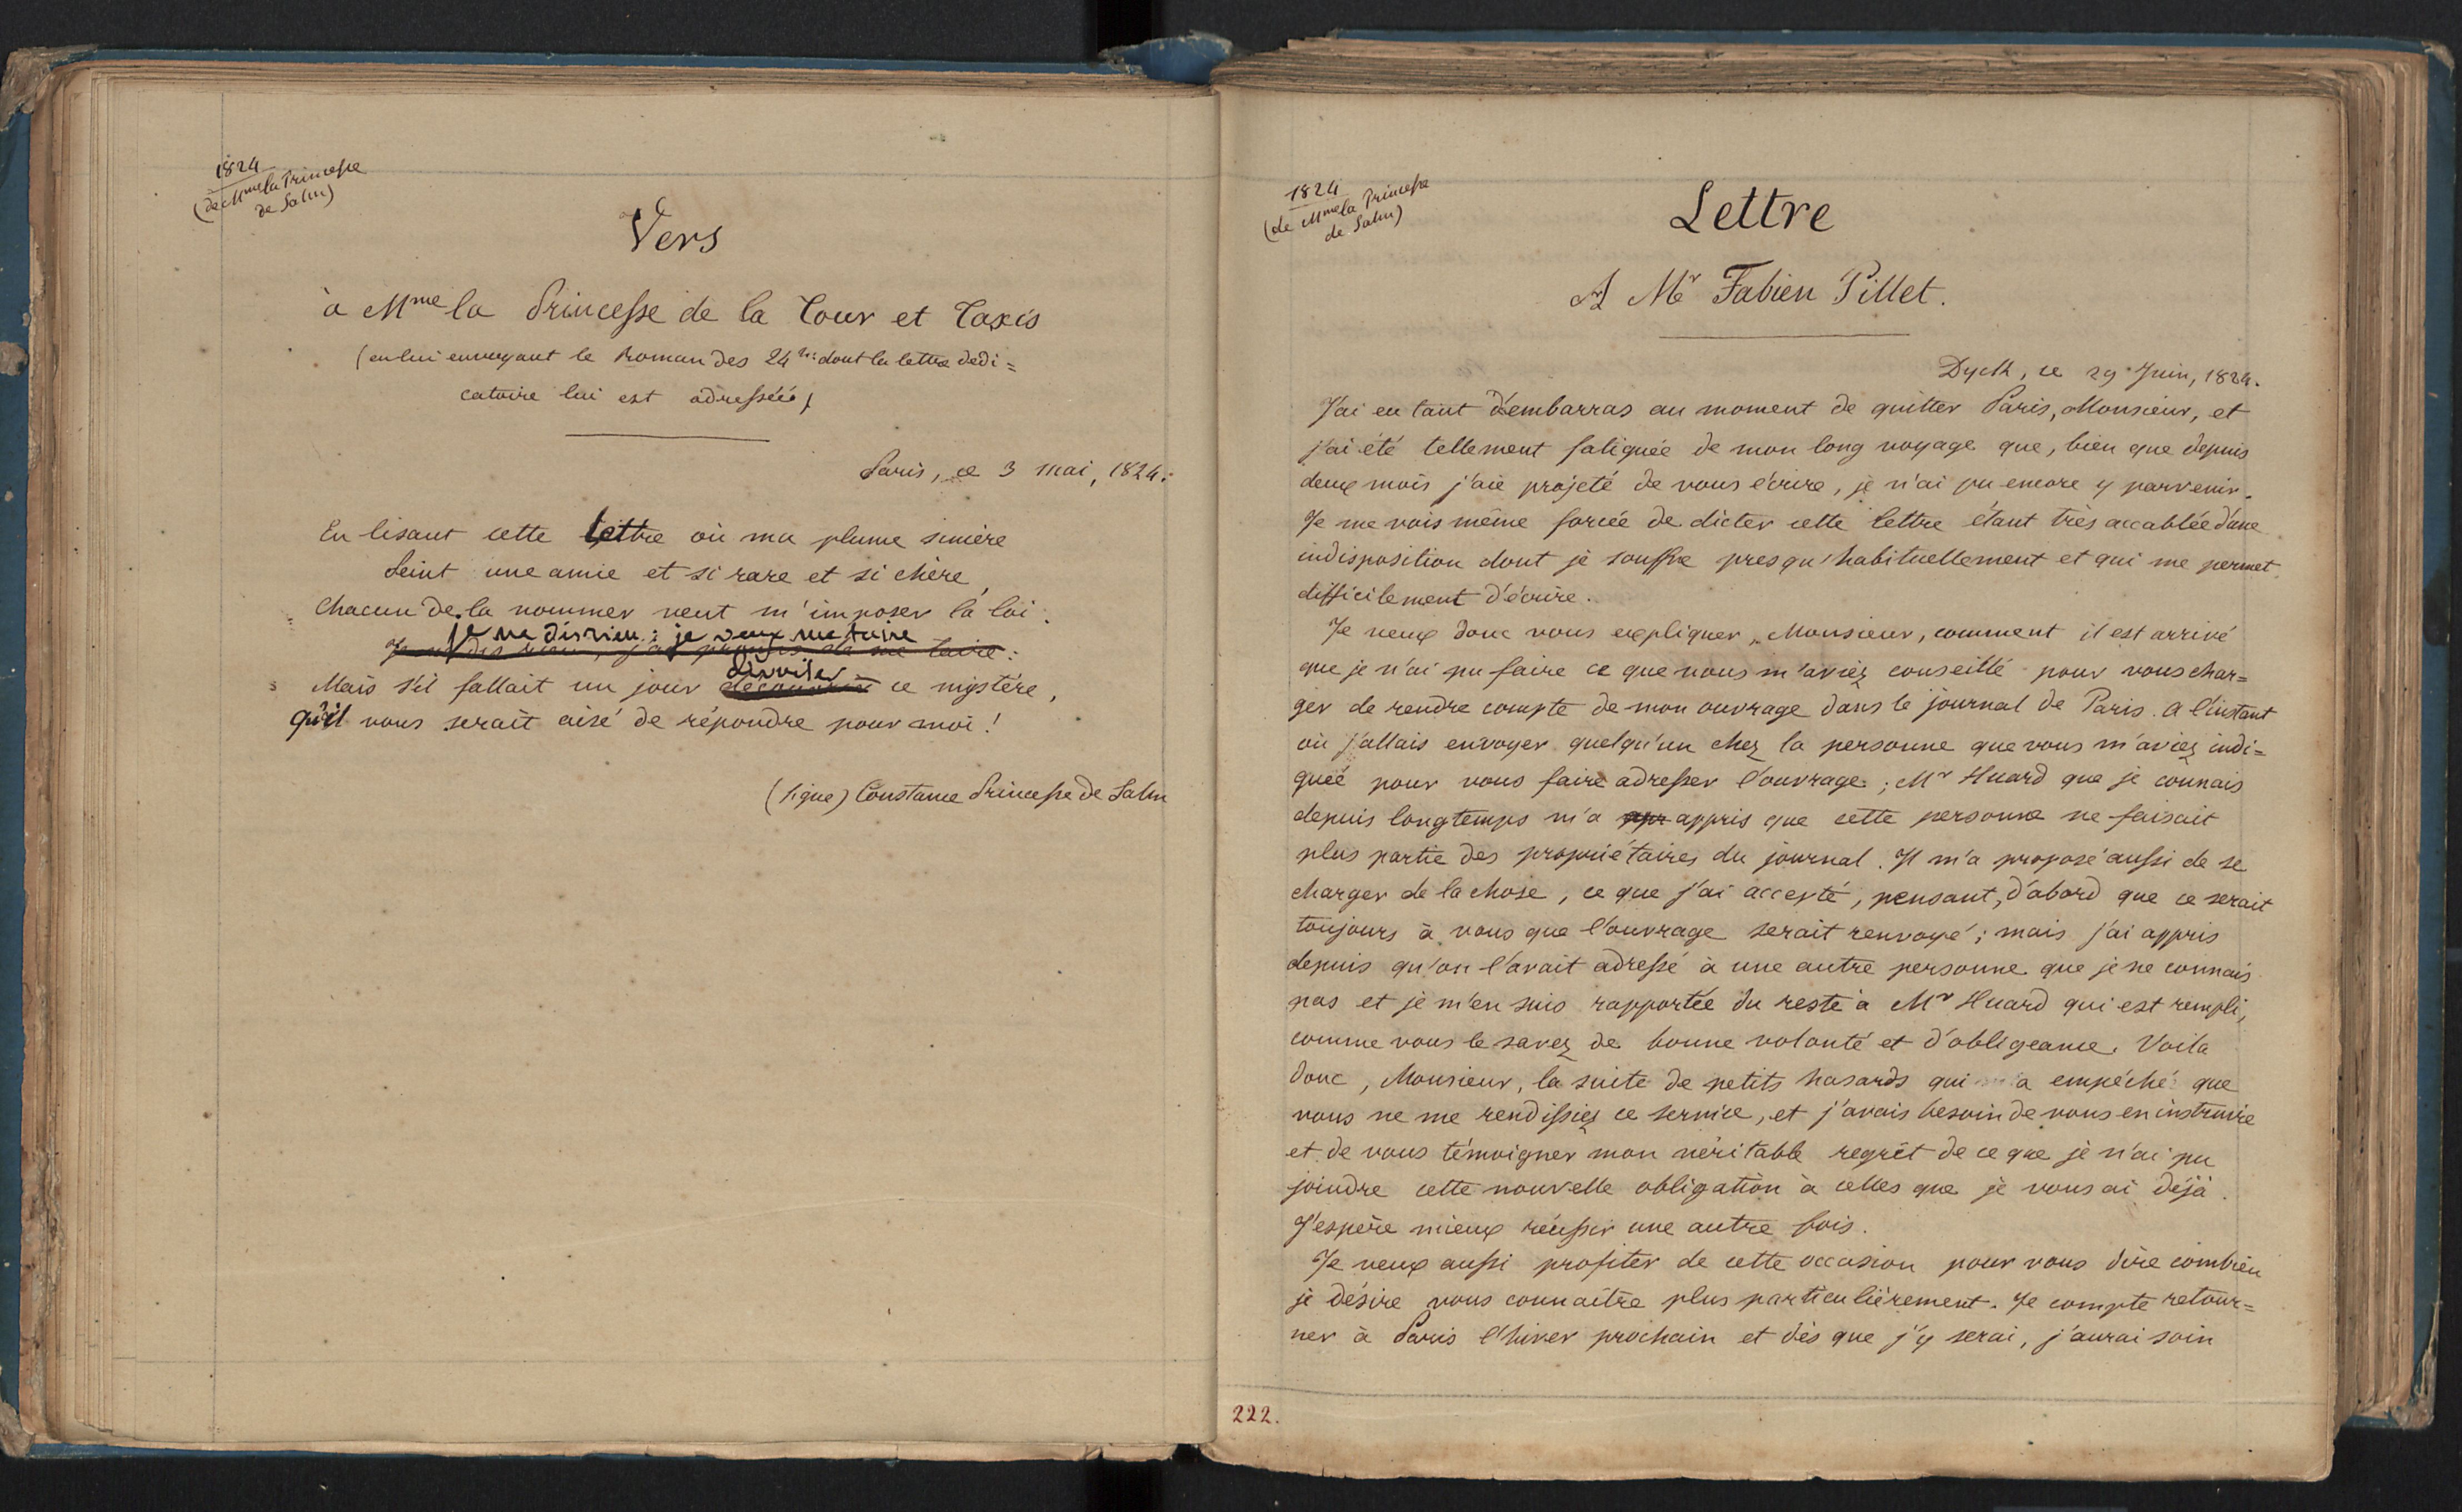 1824
(de Mme la Princesse
de Salm)
Vers
à Mme la Princesse de la Tour et Taxis
(en lui envoyant le Roman des 24 h: dont la lettre dédi=
catoire lui est adressée)
Paris, ce 3 mai, 1824.
En lisant cette lettre où ma plume sincère
Peint une amie et si rare et si chère,
Chacun de la nommer veut m'imposer la loi:
je ne dis rien; je veux me taire
Je ne dis rien, j'ai promis de me taire:
dévoiler
Mais s'il fallait un jour découvrir ce mystère,
qu'il vous serait aisé de répondre pour moi!
(signé) Constance Princesse de Salm
1824
(de Mme la Princesse
de Salm)
Lettre
A Mr Fabien Pillet.
Dyck, ce 29 Juin, 1824.
J'ai eu tant d'embarras au moment de quitter Paris, Monsieur, et
j'ai été tellement fatiguée de mon long voyage que, bien que depuis
deux mois j'aie projeté de vous écrire, je n'ai pu encore y parvenir.
Je me vois même forcée de dicter cette lettre étant très accablée d'une
indisposition dont je souffre presqu'habituellement et qui me permet
difficilement d'écrire.
Je veux donc vous expliquer, Monsieur, comment il est arrivé
que je n'ai pu faire ce que vous m'aviez conseillé pour vous char=
ger de rendre compte de mon ouvrage dans le journal de Paris. A l'instant
où j'allais envoyer quelqu'un chez la personne que vous m'aviez indi=
quée pour vous faire adresser l'ouvrage; Mr Huard que je connais
depuis longtemps m'a appr appris que cette personne ne faisait
plus partie des propriétaires du journal. Il m'a proposé aussi de se
charger de la chose, ce que j'ai accepté, pensant, d'abord que ce serait
toujours à vous que l'ouvrage serait renvoyé; mais j'ai appris
depuis qu'on l'avait adressé à une autre personne que je ne connais
pas et je m'en suis rapportée du reste à Mr Huard qui est rempli,
comme vous le savez de bonne volonté et d'obligeance. Voila
donc, Monsieur, la suite de petits hasards qui a empêché que
vous ne me rendissiez ce service, et j'avais besoin de vous en instruire
et de vous témoigner mon véritable regrêt de ce que je n'ai pu
joindre cette nouvelle obligation à celles que je vous ai déjà.
J'espère mieux réussir une autre fois.
Je veux aussi profiter de cette occasion pour vous dire combien
je désire vous connaître plus particulièrement. Je compte retour=
ner à Paris l'hiver prochain et dès que j'y serai, j'aurai soin
222.